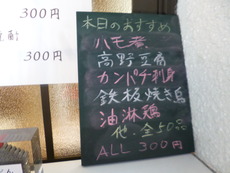 300円
300円
本日のおすすめ
ハモ煮
高野豆腐
カンパチ刺身
鉄板焼き鳥
油淋鶏
他、全50品
ALL 300円